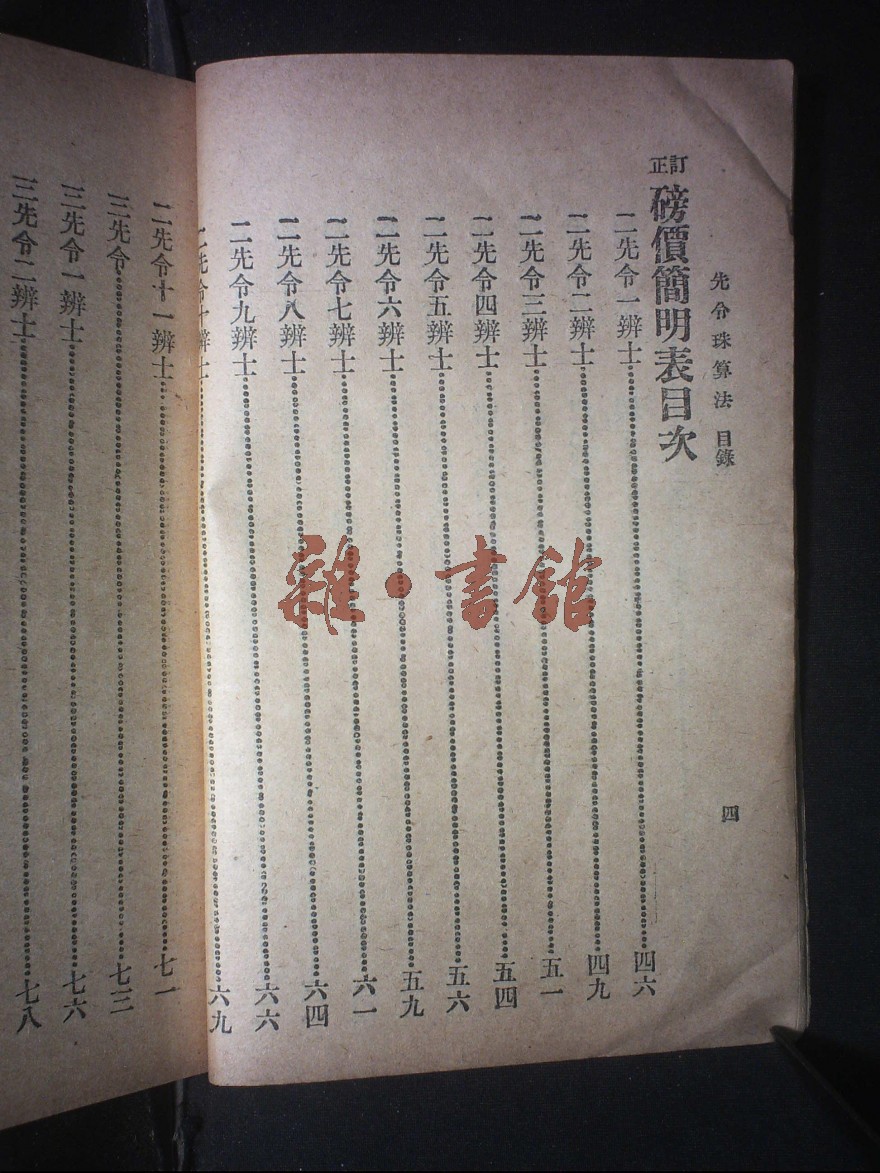 先令珠算法 目錄
四
訂正 磅價簡明表目次
二先令一辨士……四六
二先令二辨士……四九
二先令三辨士……五一
二先令四辨士……五四
二先令五辨士……五六
二先令六辨士……五九
二先令七辨士……六一
二先令八辨士……六四
二先令九辨士……六六
二先令十辨士……六九
二先令十一辨士……七一
三先令……七三
三先令一辨士……七六
三先令二辨士……七八
雜·書館